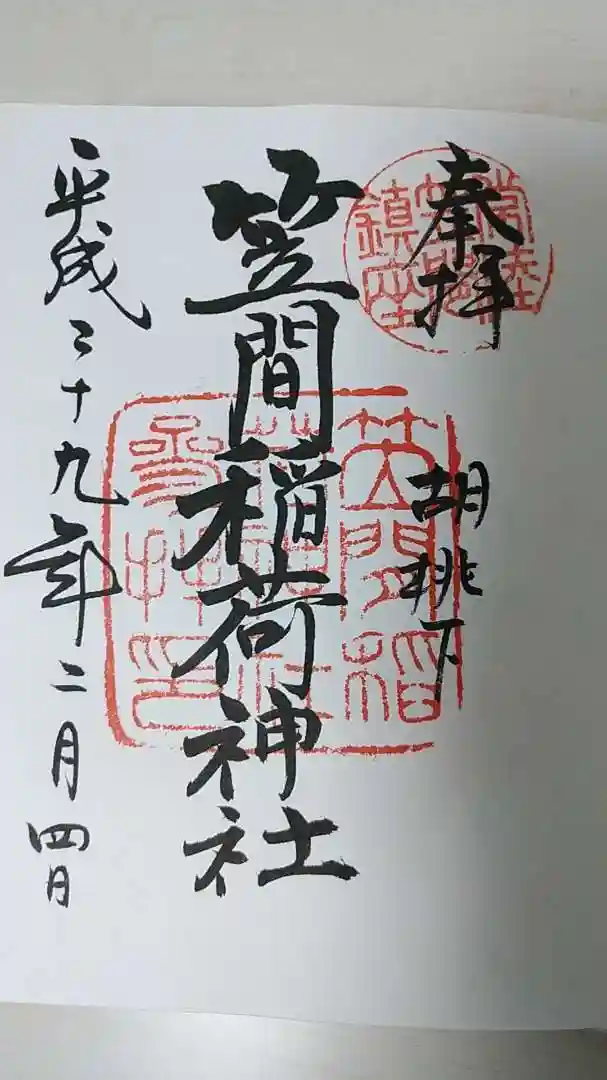 奉拝
胡桃下
笠間稲荷神社
平成二十九年二月四日
常陸
笠間
鎮座
笠間稲
荷神社
参拝之印